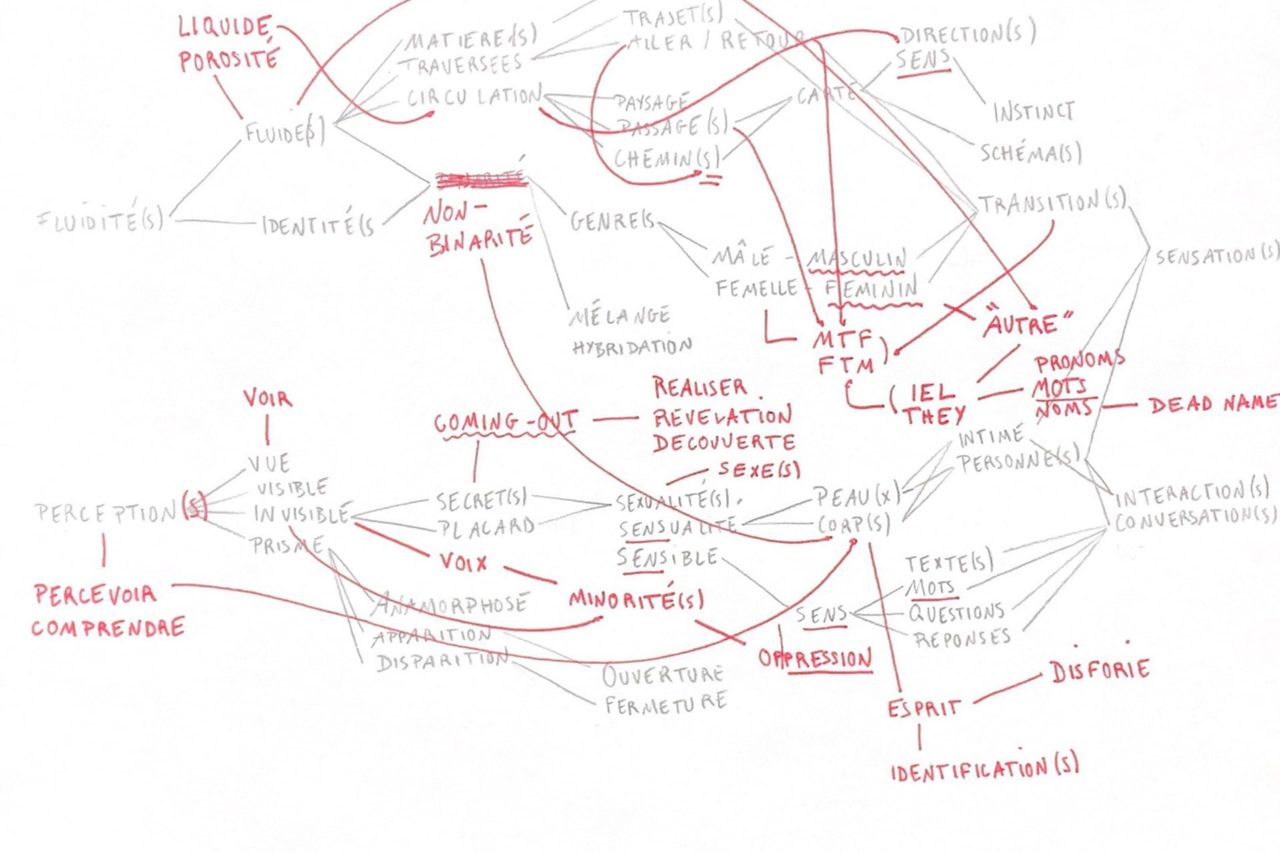 LIQUIDE
POROSITÉ
FLUIDE(S)
FLUIDITÉ(S)
IDENTITÉ(S
MATIERE(S)
TRAVERSÉES
CIRCULATION
NON-
BINARITÉ
TRAJET(S)
ALLER / RETOUR
PAYSAGE
PASSAGE(S)
CHEMIN(S)
CARTE
DIRECTION(S)
SENS
INSTINCT
SCHÉMA(S)
TRANSITION(S)
SENSATION(S)
GENRE(S
MÂLE - MASCULIN
FEMELLE - FEMININ
MÉLANGE
HYBRIDATION
MTF
FTM
"AUTRE"
(IEL
THEY
PRONOMS
MOTS
NOMS
DEAD NAME
VOIR
VUE
VISIBLE
INVISIBLE
PRISME
PERCEPTION(S)
PERCEVOIR
COMPRENDRE
COMING-OUT
REALISER
REVELATION
DECOUVERTE
SEXE(S)
SECRET(S)
PLACARD
SEXUALITÉ(S)
SENSUALITÉ
SENSIBLE
PEAU(X)
CORP(S)
INTIME
PERSONNE(S)
INTERACTION(S)
CONVERSATION(S)
VOIX
MINORITÉ(S)
OPPRESSION
ANAMORPHOSE
APPARITION
DISPARITION
OUVERTURE
FERMETURE
SENS
TEXTE(S)
MOTS
QUESTIONS
REPONSES
ESPRIT
DISFORIE
IDENTIFICATION(S)